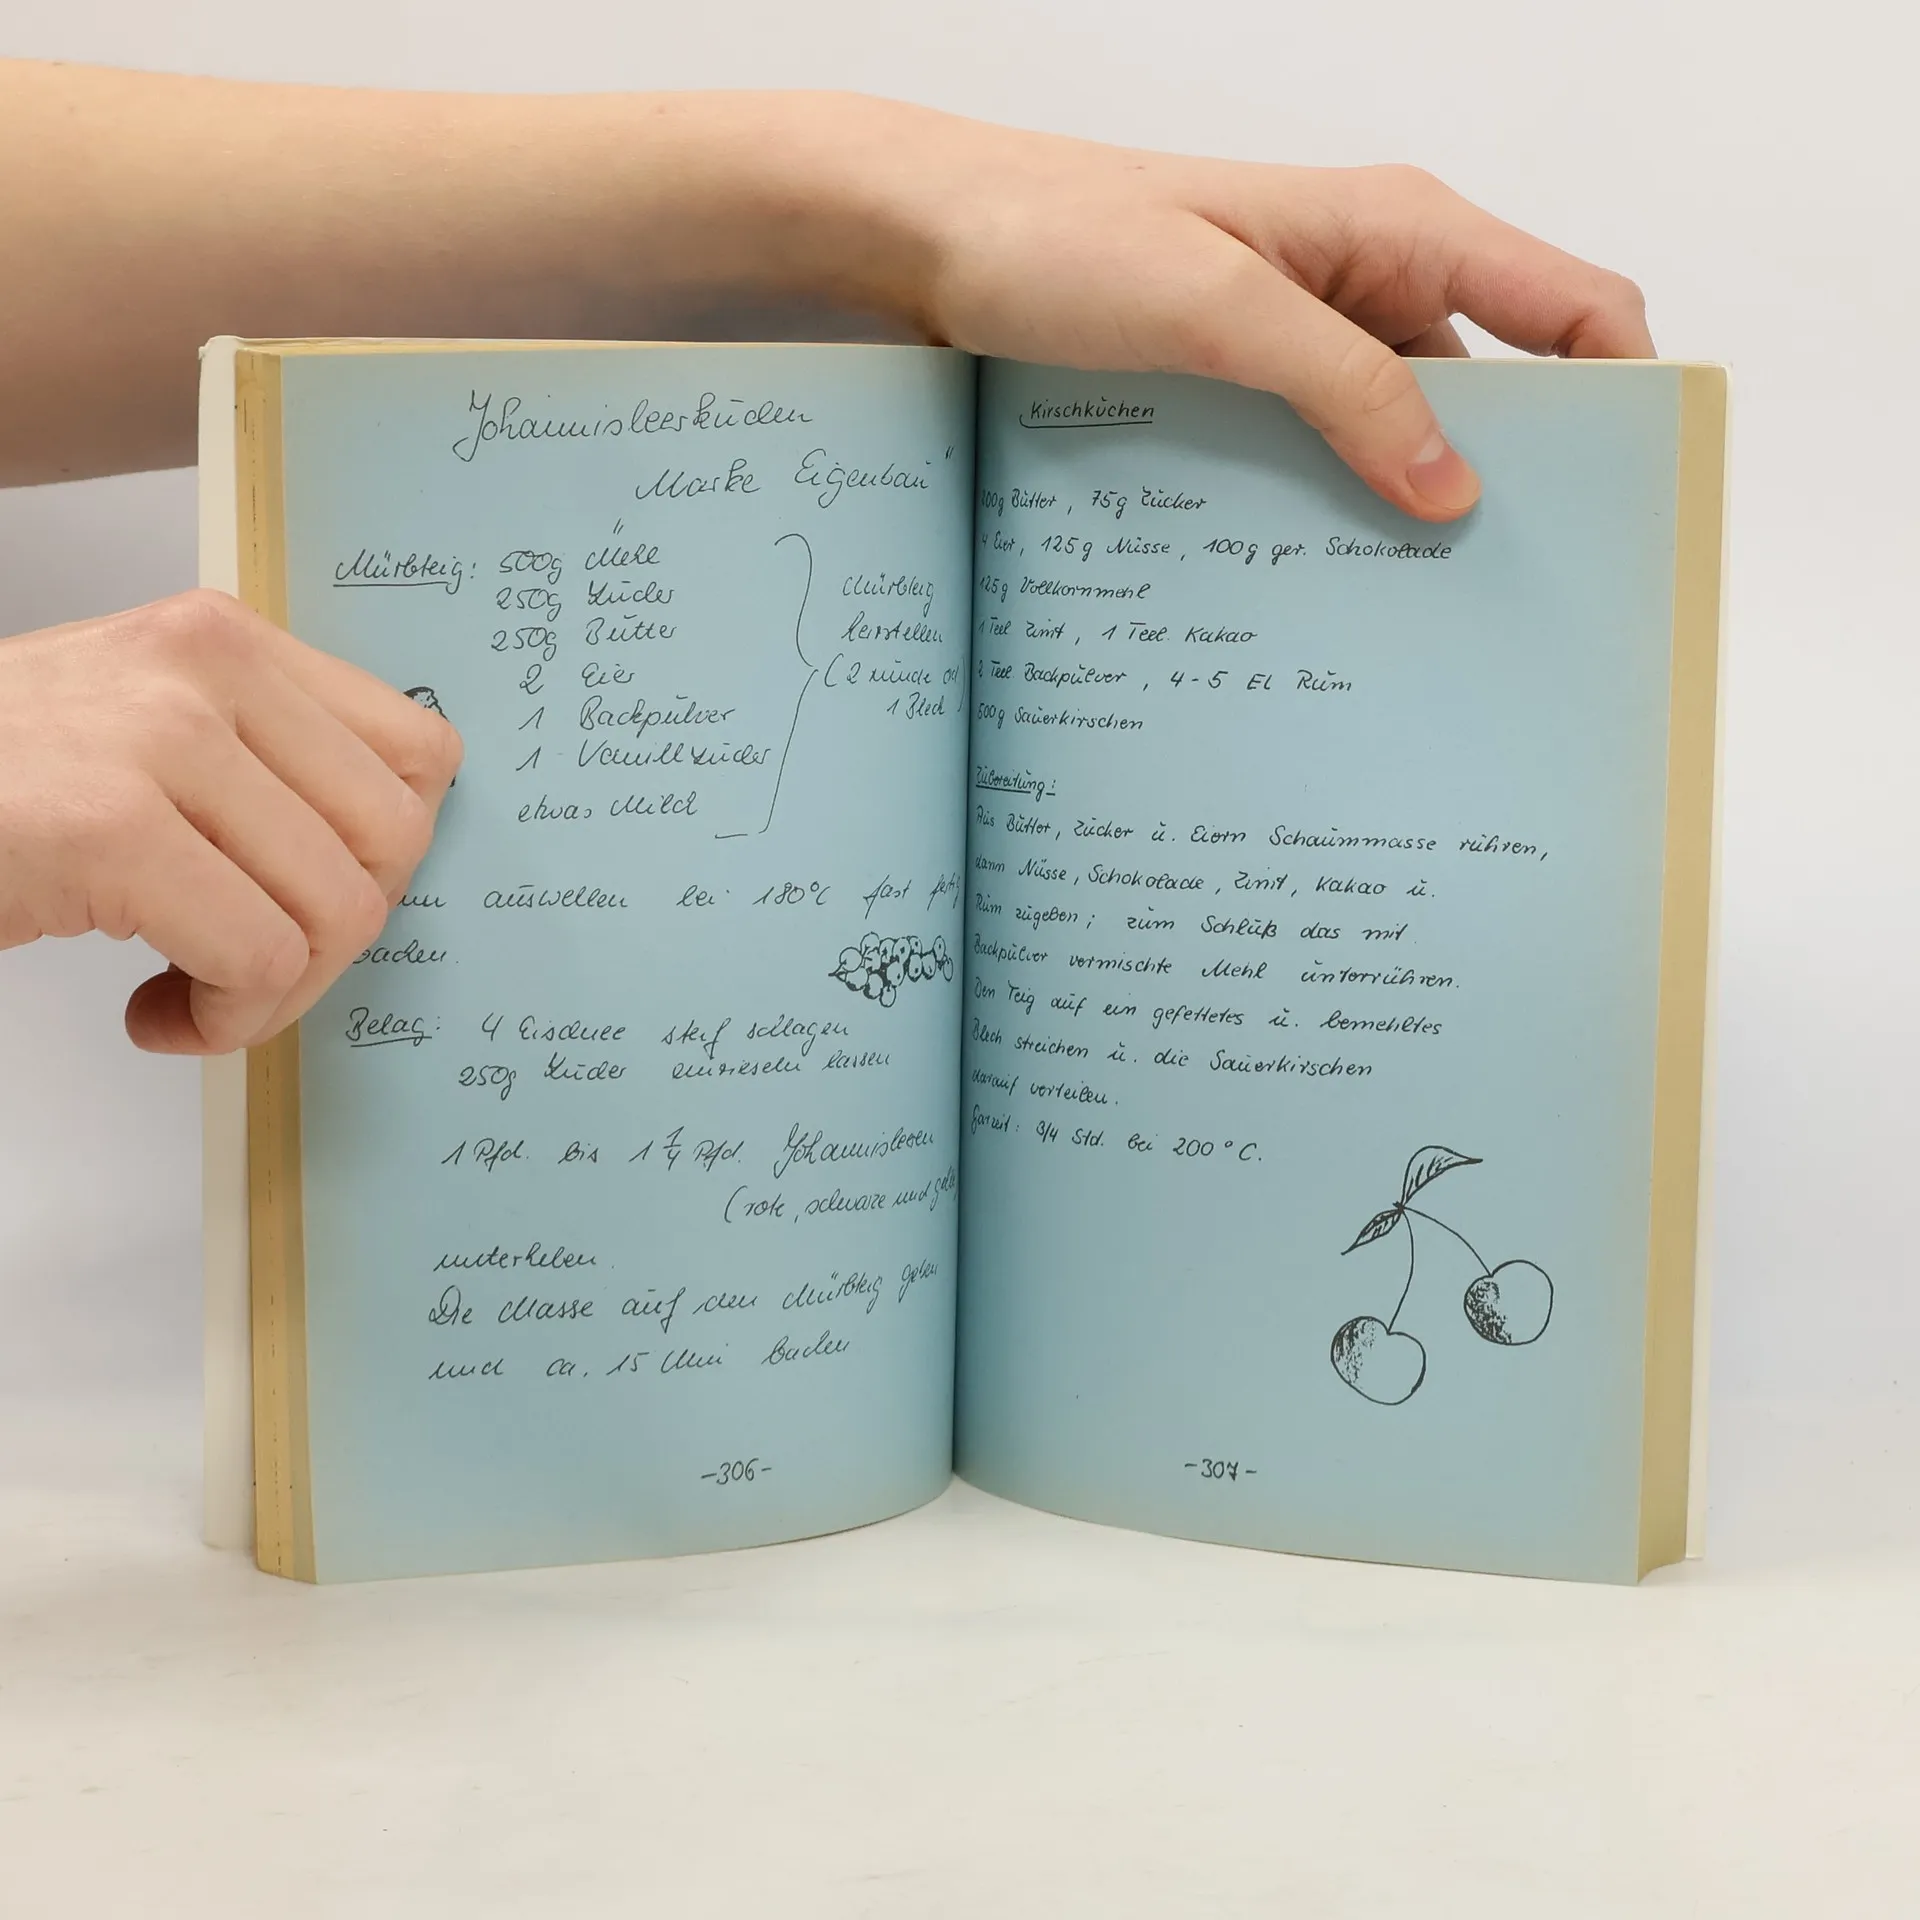 Johannisbeerkuchen
„Marke Eigenbau"
Mürbteig: 500g Mehl
250g Zucker
250g Butter
2 Eier
1 Backpulver
1 Vanillzucker
etwas Milch
Mürbteig
herstellen
(2 runde od
1 Blech)
auswellen bei 180°C fast fertig
backen.
Belag: 4 Eischnee steif schlagen
250g Zucker einrieseln lassen
1 Pfd. bis 1 1/4 Pfd. Johannisbeeren
(rote, schwarze und gelbe)
unterheben.
Die Masse auf den Mürbteig geben
und ca. 15 Min backen
-306-
Kirschkuchen
Butter, 75g Zucker
4 Eier, 125g Nüsse, 100g ger. Schokolade
125g Vollkornmehl
1 Teel Zimt, 1 Teel. Kakao
2 Teel Backpulver, 4-5 EL Rum
500g Sauerkirschen
Zubereitung:
Aus Butter, Zucker u. Eiern Schaummasse rühren,
dann Nüsse, Schokolade, Zimt, Kakao u.
Rum zugeben; zum Schluß das mit
Backpulver vermischte Mehl unterrühren.
Den Teig auf ein gefettetes u. bemehltes
Blech streichen u. die Sauerkirschen
darauf verteilen.
Garzeit: 3/4 Std. bei 200°C.
-307-